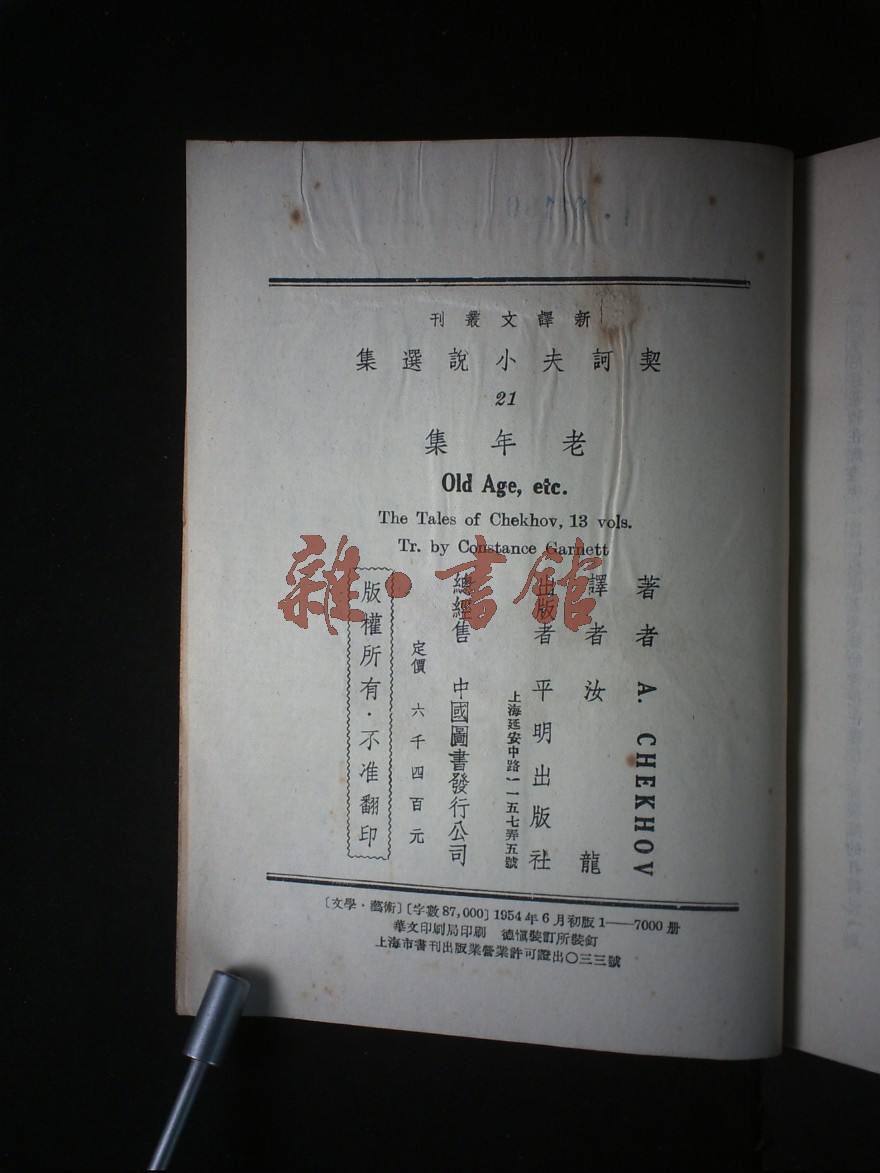 新譯文叢刊
契訶夫小說選集
21
老年集
Old Age, etc.
The Tales of Chekhov, 13 vols.
Tr. by Constance Garnett
著者 A. CHEKHOV
譯者 汝龍
出版者 平明出版社
上海延安中路一一五七弄五號
總經售 中國圖書發行公司
定價 六千四百元
版權所有·不准翻印
〔文學·藝術〕〔字數87,000〕1954年6月初版1——7000册
華文印刷局印刷 德愼裝訂所裝訂
上海市書刊出版業營業許可證出〇三三號
雜·書館